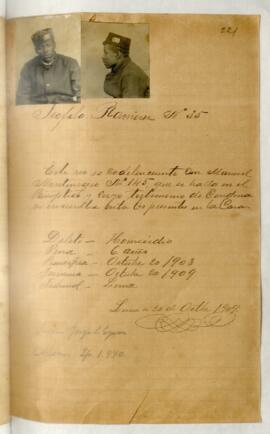 221
Teofilo Ramirez Nº 35
Este reo es codelincuente con Manuel
Montenegro Nº 145 que se halla en el
Panóptico y cuyo testimonio de Condena
se encuentra en la
Delito — Homicidio
Pena — 6 años
Principia — Octubre 20 / 1903
Termina — Octubre 20 / 1909
Tribunal — Lima
Lima, 20 de Octbre 1909